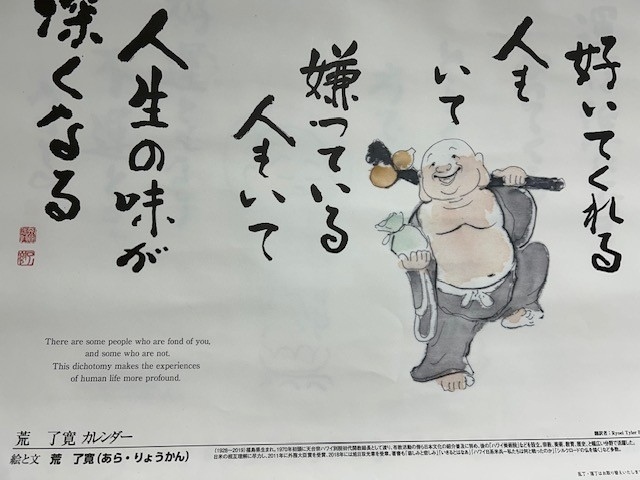 好いてくれる
人も
いて
嫌っている
人もいて
人生の味が
深くなる
There are some people who are fond of you,
and some who are not.
This dichotomy makes the experiences
of human life more profound.
荒 了寛 カレンダー
絵と文 荒 了寛（あら・りょうかん）